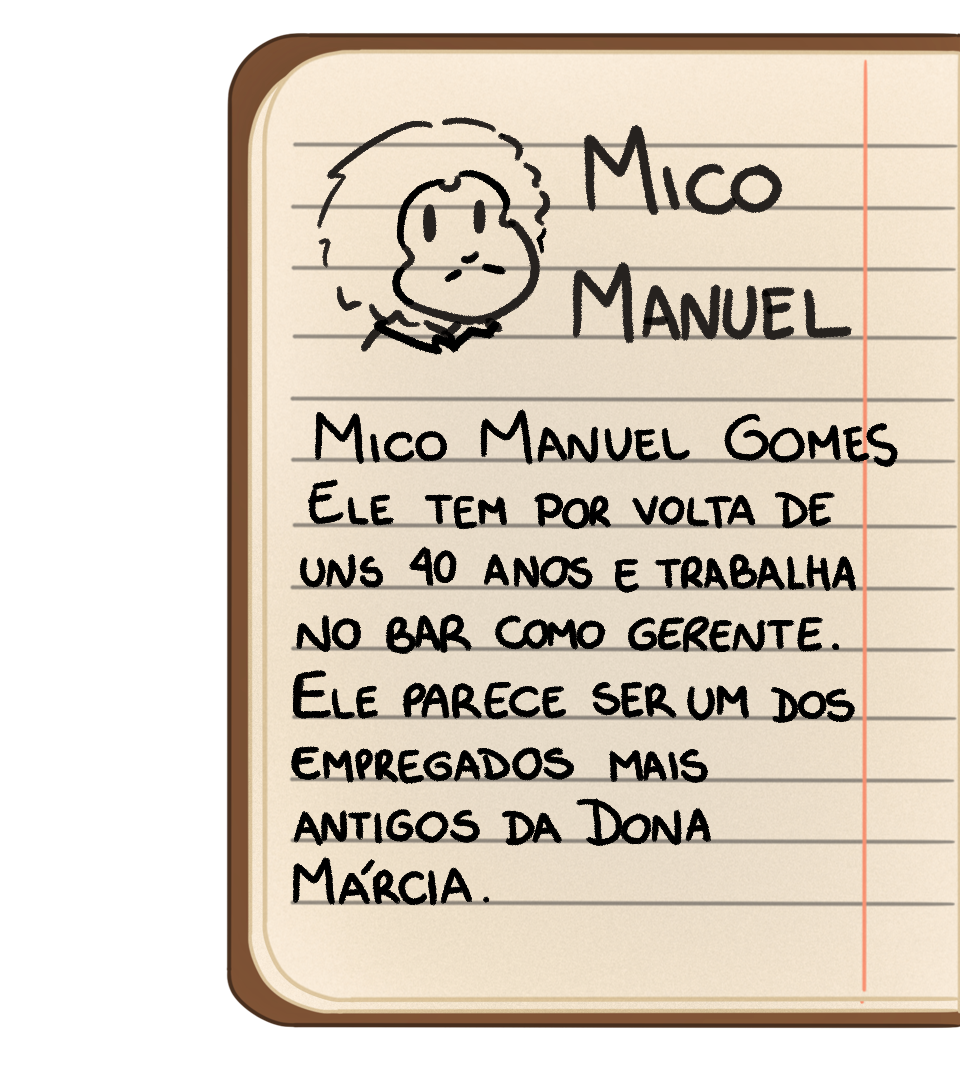 MICO
MANUEL
MICO MANUEL GOMES
ELE TEM POR VOLTA DE
UNS 40 ANOS E TRABALHA
NO BAR COMO GERENTE.
ELE PARECE SER UM DOS
EMPREGADOS MAIS
ANTIGOS DA DONA
MÁRCIA.